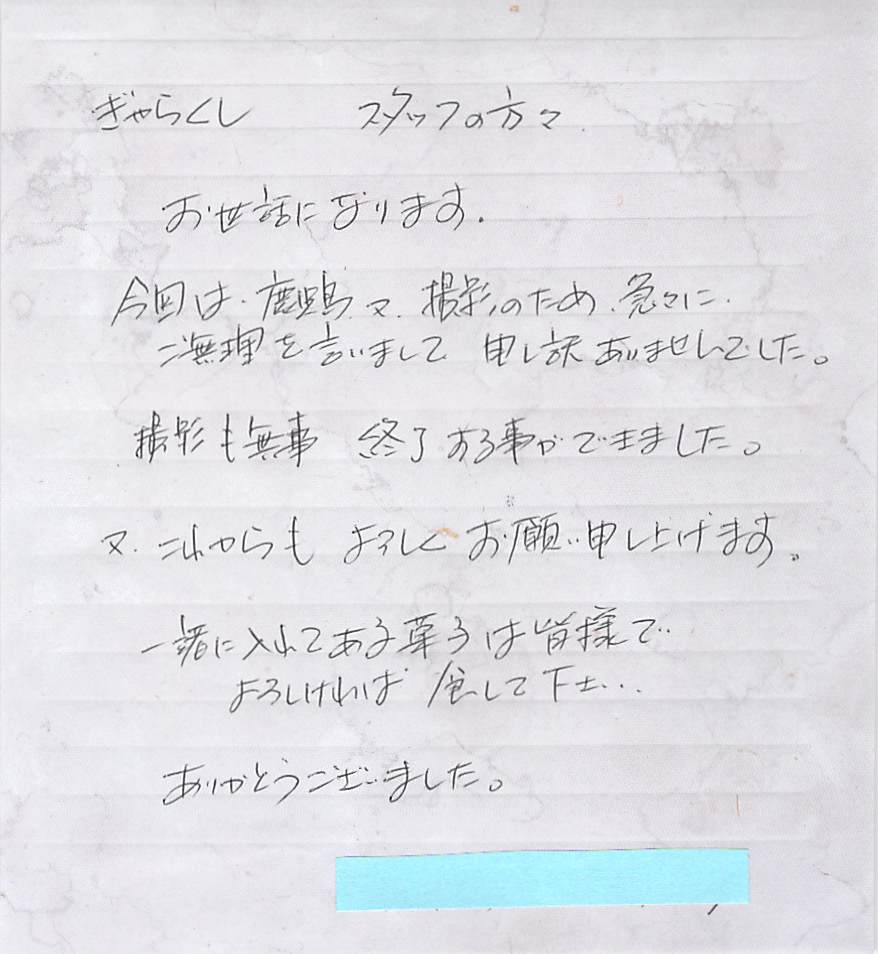 ぎゃらくし　スタッフの方々
お世話になります.
今回は、鹿児島、又、撮影のため、急々に、
ご無理を言いまして 申し訳ありませんでした。
撮影も無事 終了する事ができました。
又、これからも よろしくお願い申し上げます。
一緒に入れてある菓子は皆様で
よろしければ 食して下さい..
ありがとうございました。